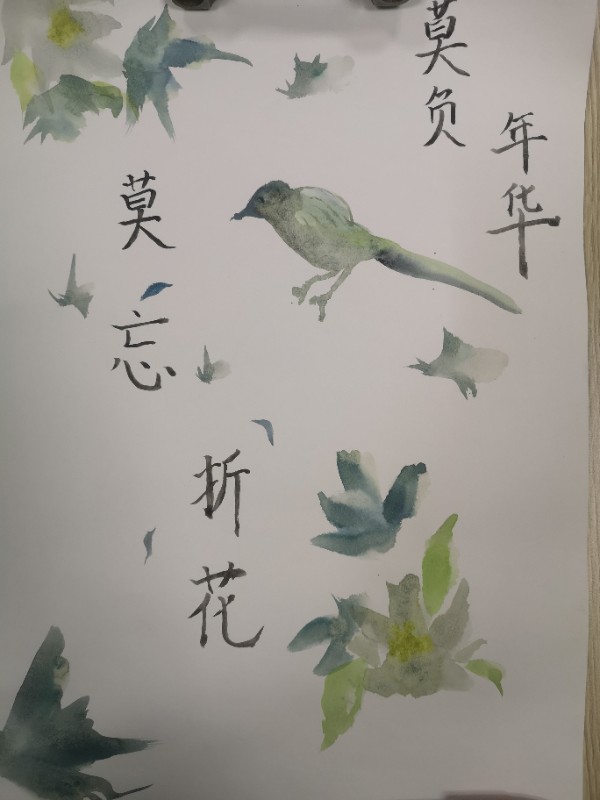 莫负
年华
莫忘
折花